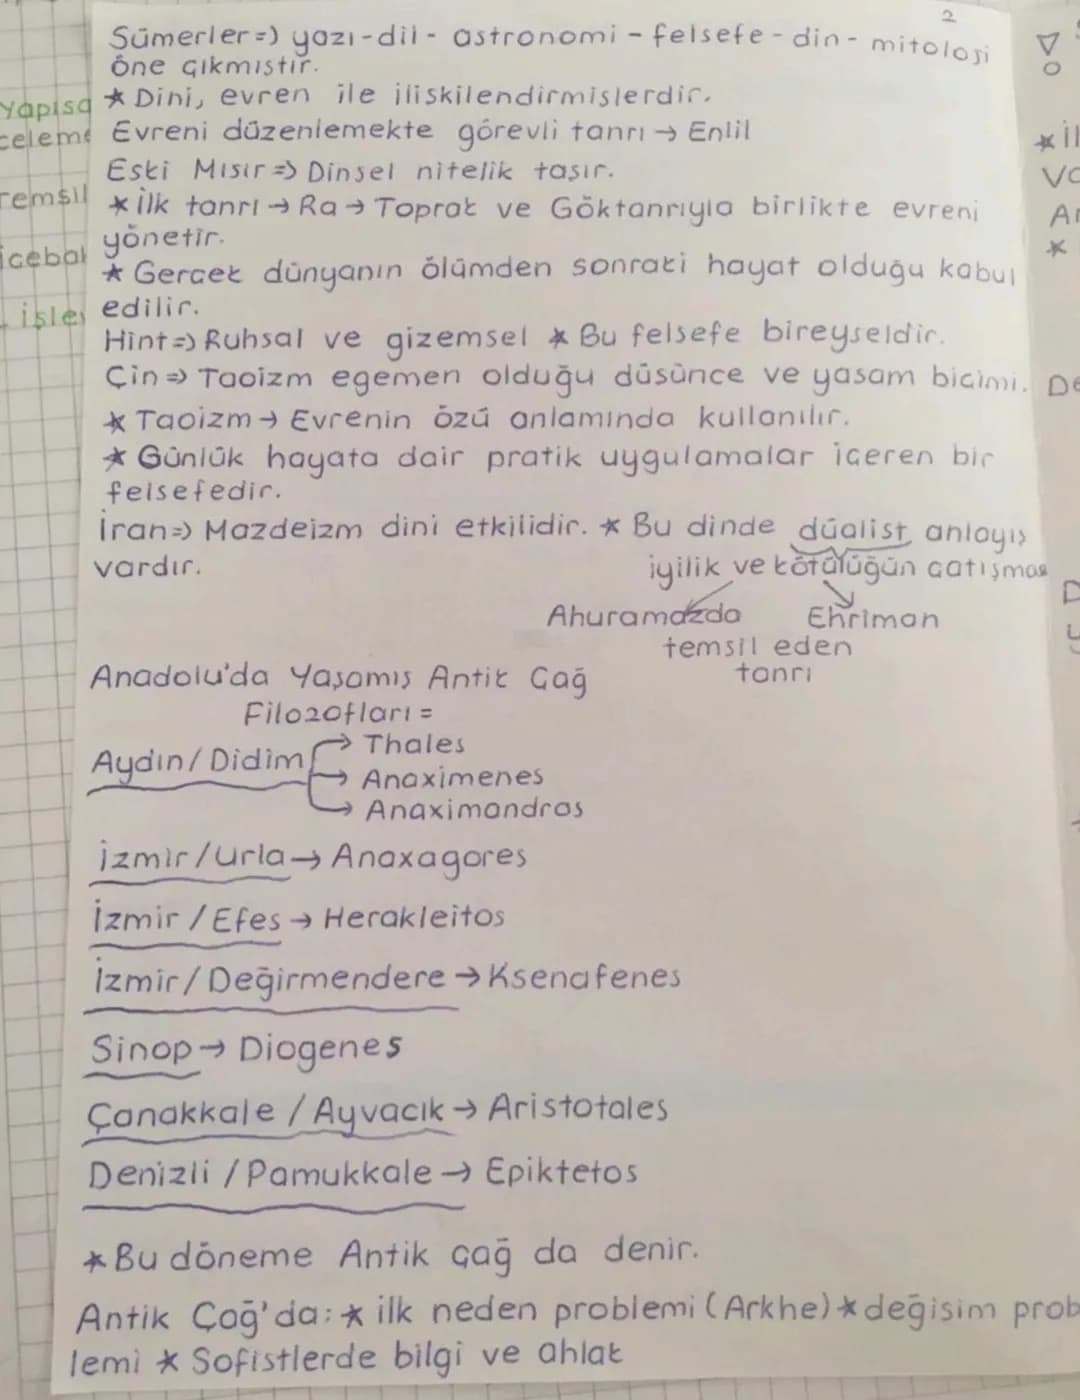 2
Sümerler=) yazı-dil- astronomi - felsefe - din - mitoloji
öne çıkmıştır.
* Dini, evren ile ilişkilendirmişlerdir.
Evreni düzenlemekte görevli tanrı → Enlil
Eski Mısır => Dinsel nitelik taşır.
* İlk tanrı → Ra → Toprak ve Göktanrıyla birlikte evreni
yönetir.
* Gerçek dünyanın ölümden sonraki hayat olduğu kabul
edilir.
Hint=) Ruhsal ve gizemsel * Bu felsefe bireyseldir.
Çin => Taoizm egemen olduğu düşünce ve yaşam biçimi.
* Taoizm → Evrenin özü anlamında kullanılır.
* Günlük hayata dair pratik uygulamalar içeren bir
felsefedir.
İran=) Mazdeizm dini etkilidir. * Bu dinde düalist anlayış
vardır.
iyilik ve kötülüğün çatışması
Ahuramazda Ehriman
temsil eden
tanrı
Anadolu'da Yaşamış Antik Çağ
Filozofları =
Aydın/ Didim → Thales
→ Anaximenes
→ Anaximandros
İzmir/Urla → Anaxagores
İzmir / Efes → Herakleitos
İzmir/ Değirmendere → Ksenafenes
Sinop → Diogenes
Çanakkale / Ayvacık → Aristotales
Denizli / Pamukkale → Epiktetos
* Bu döneme Antik çağ da denir.
Antik Çağ'da: * ilk neden problemi (Arkhe) * değişim prob
lemi * Sofistlerde bilgi ve ahlak